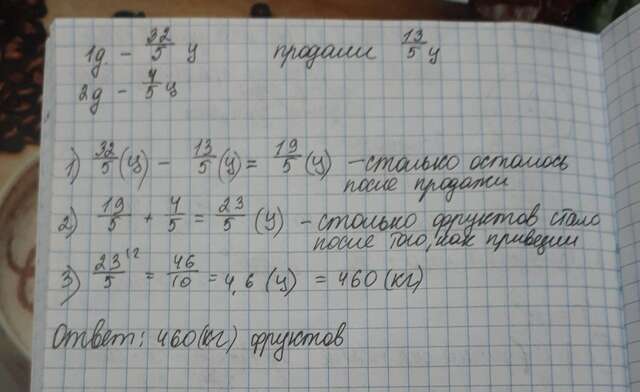 1д - 32/5 ц продали 13/5 ц
2д - 4/5 ц
1) 32/5 (ц) - 13/5 (ц) = 19/5 (ц) - столько осталось
после продажи
2) 19/5 + 4/5 = 23/5 (ц) - столько фруктов стало
после того, как привезли
3) 23/5 ^(2 = 46/10 = 4,6 (ц) = 460 (кг)
Ответ: 460 (кг) фруктов